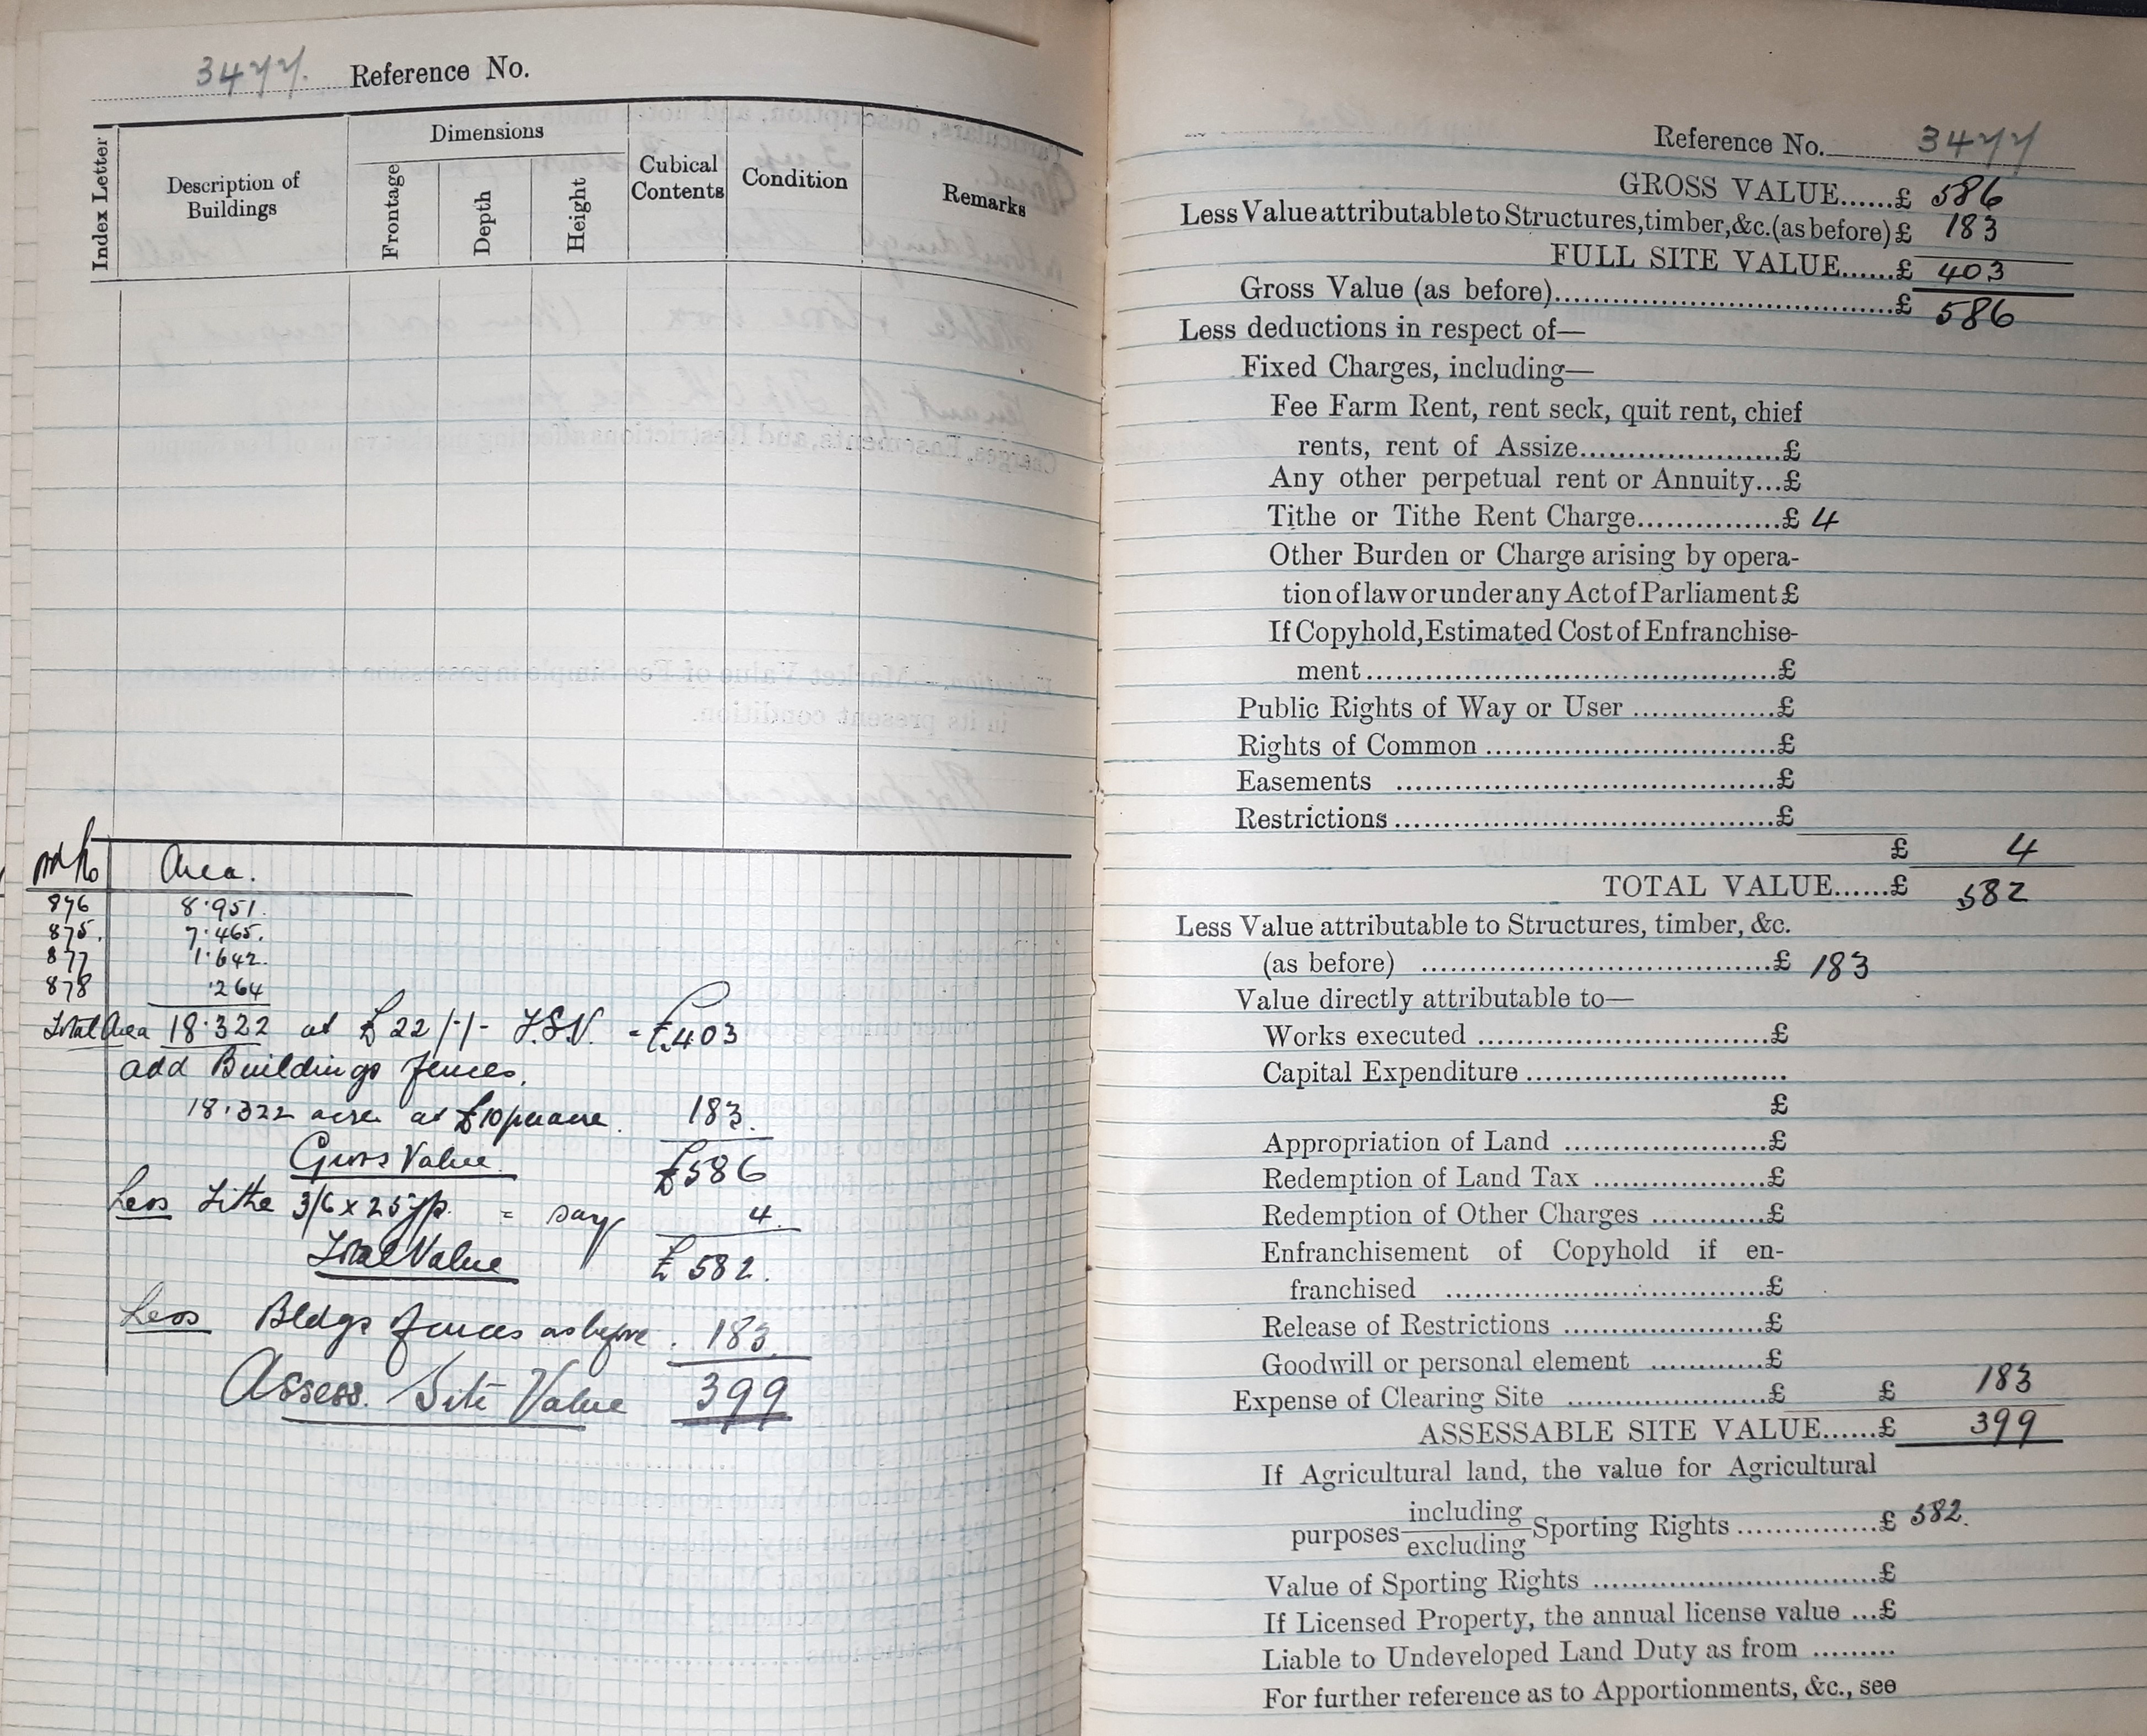 3477. Reference No.
Index Letter
Description of
Buildings
Dimensions
Frontage
Depth
Height
Cubical
Contents
Condition
Remarks
Ord No Area.
876 8.951.
875. 7.465.
877 1.642.
878 .264
Total Area 18.322 at £22/-/- F.S.V. = £403
add Buildings fences.
18.322 acres at £10 per acre. 183.
Gross Value £586
Less Tithe 3/6 x 25 yp. = say 4.
Total Value £582.
Less Bldgs fences as before. 183.
Assess. Site Value 399
Reference No. 3477
GROSS VALUE......£ 586
Less Value attributable to Structures, timber, &c. (as before) £ 183
FULL SITE VALUE......£ 403
Gross Value (as before)..........£ 586
Less deductions in respect of—
Fixed Charges, including—
Fee Farm Rent, rent seck, quit rent, chief
rents, rent of Assize..........£
Any other perpetual rent or Annuity...£
Tithe or Tithe Rent Charge..........£ 4
Other Burden or Charge arising by opera-
tion of law or under any Act of Parliament £
If Copyhold, Estimated Cost of Enfranchise-
ment..........£
Public Rights of Way or User ..........£
Rights of Common ..........£
Easements ..........£
Restrictions ..........£
£ 4
TOTAL VALUE......£ 582
Less Value attributable to Structures, timber, &c.
(as before) ..........£ 183
Value directly attributable to—
Works executed ..........£
Capital Expenditure ..........
£
Appropriation of Land ..........£
Redemption of Land Tax ..........£
Redemption of Other Charges ..........£
Enfranchisement of Copyhold if en-
franchised ..........£
Release of Restrictions ..........£
Goodwill or personal element ..........£
Expense of Clearing Site ..........£ £ 183
ASSESSABLE SITE VALUE......£ 399
If Agricultural land, the value for Agricultural
purposes including/excluding Sporting Rights ..........£ 582.
Value of Sporting Rights ..........£
If Licensed Property, the annual license value ...£
Liable to Undeveloped Land Duty as from .........
For further reference as to Apportionments, &c., see